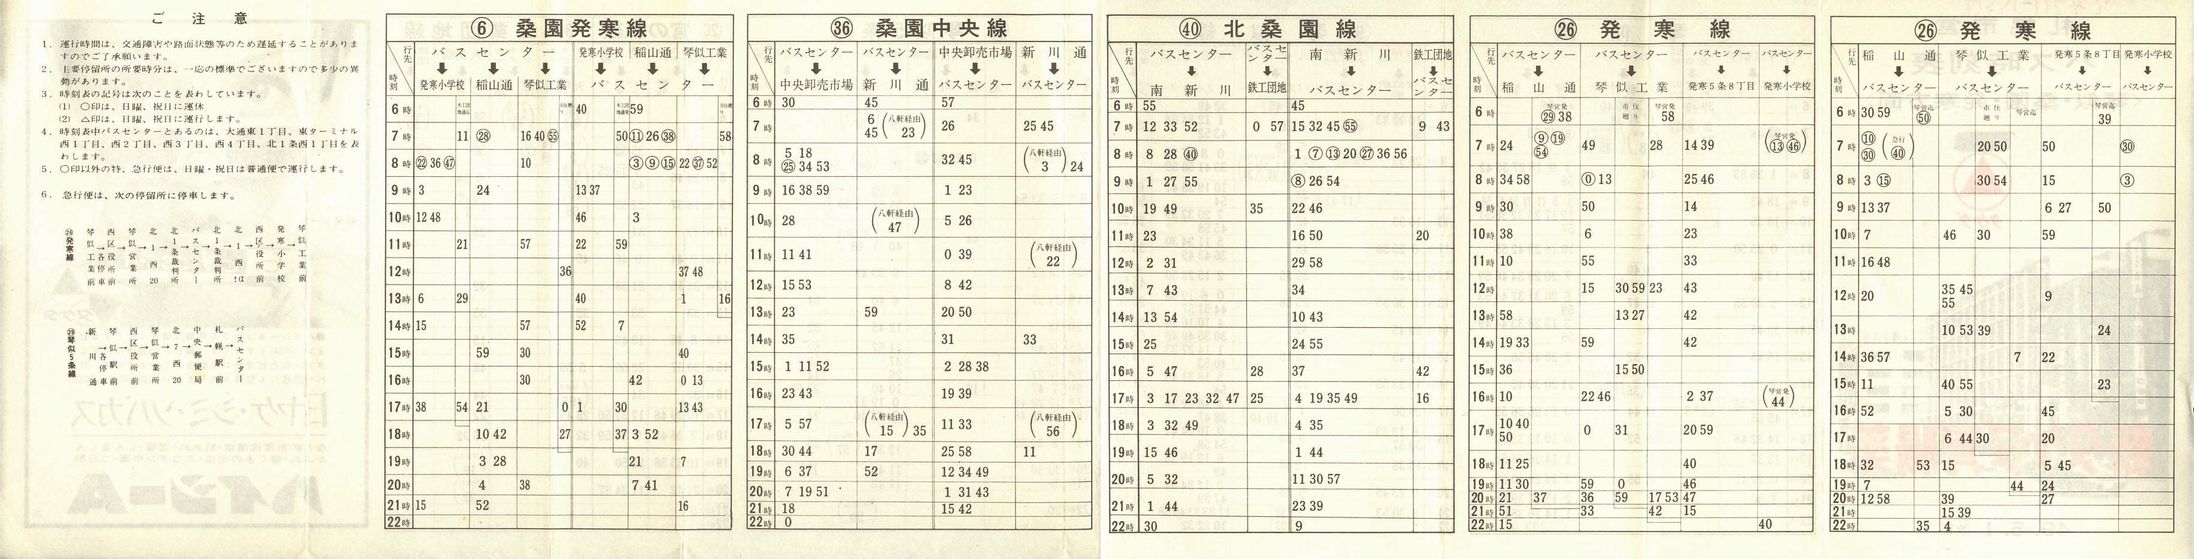 ご注意
1. 運行時間は、交通障害や路面状態等のため遅延することがありま
すのでご了承願います。
2. 主要停留所の所要時分は、一応の標準でございますので多少の異
動があります。
3. 時刻表の記号は次のことを表わしています。
(1) ○印は、日曜、祝日に運休
(2) △印は、日曜、祝日に運行します。
4. 時刻表中バスセンターとあるのは、大通東1丁目、東ターミナル
西1丁目、西2丁目、西3丁目、西4丁目、北1条西1丁目を表
わします。
5. ○印以外の特、急行便は、日曜・祝日は普通便で運行します。
6. 急行便は、次の停留所に停車します。
㉖発寒線
琴似工業前→各停車→西区役所前→琴似営業所前→北1西20→北1条裁判所→バスセンター→北1条裁判所→北1西→西区役所前→発寒小学校→琴似工業前
琴似5条線
新川通→各停車→琴似駅前→西区役所前→琴似営業所→北7西20→中央郵便局→札幌駅前→バスセンター
⑥ 桑園発寒線
行先 バスセンター 発寒小学校 稲山通 琴似工業
時刻 発寒小学校 稲山通 琴似工業 バスセンター
6時 40 59
7時 11 ㉘ 16 40 55 50 ⑪ 26 ㊳ 58
8時 ㉒ 36 ㊼ 10 ③ ⑨ ⑮ 22 ㊲ 52
9時 3 24 13 37
10時 12 48 46 3
11時 21 57 22 59
12時 36 37 48
13時 6 29 40 1 16
14時 15 57 52 7
15時 59 30 40
16時 30 42 0 13
17時 38 54 21 0 1 30 13 43
18時 10 42 27 37 3 52
19時 3 28 21 7
20時 4 38 7 41
21時 15 52 16
22時
㊱ 桑園中央線
行先 バスセンター バスセンター 中央卸売市場 新川通
時刻 中央卸売市場 新川通 バスセンター バスセンター
6時 30 45 57
7時 6 45 (八軒経由 23) 26 25 45
8時 5 18 ㉕ 34 53 32 45 (八軒経由 3) 24
9時 16 38 59 1 23
10時 28 (八軒経由 47) 5 26
11時 11 41 0 39 (八軒経由 22)
12時 15 53 8 42
13時 23 59 20 50
14時 35 31 33
15時 1 11 52 2 28 38
16時 23 43 19 39
17時 5 57 (八軒経由 15) 35 11 33 (八軒経由 56)
18時 30 44 17 25 58 11
19時 6 37 52 12 34 49
20時 7 19 51 1 31 43
21時 18 15 42
22時 0
㊵ 北桑園線
行先 バスセンター バスセンター 南新川 鉄工団地
時刻 南新川 鉄工団地 バスセンター バスセンター
6時 55 45
7時 12 33 52 0 57 15 32 45 55 9 43
8時 8 28 ㊵ 1 ⑦ ⑬ 20 ㉗ 36 56
9時 1 27 55 ⑧ 26 54
10時 19 49 35 22 46
11時 23 16 50 20
12時 2 31 29 58
13時 7 43 34
14時 13 54 10 43
15時 25 24 55
16時 5 47 28 37 42
17時 3 17 23 32 47 25 4 19 35 49 16
18時 3 32 49 4 35
19時 15 46 1 44
20時 5 32 11 30 57
21時 1 44 23 39
22時 30 9
㉖ 発寒線
行先 バスセンター バスセンター バスセンター バスセンター
時刻 稲山通 琴似工業 発寒5条8丁目 発寒小学校
6時 琴営発 ㉙ 38 市住廻り 琴営発 58
7時 24 ⑨ ⑲ 54 49 28 14 39 (琴営発 ⑬ ㊻)
8時 34 58 ⓪ 13 25 46
9時 30 50 14
10時 38 6 23
11時 10 55 33
12時 15 30 59 23 43
13時 58 13 27 42
14時 19 33 59 42
15時 36 15 50
16時 10 22 46 2 37 (琴営発 44)
17時 10 40 50 0 31 20 59
18時 11 25 40
19時 11 30 59 0 46
20時 21 37 36 59 17 53 47
21時 51 33 42 15
22時 15 40
㉖ 発寒線
行先 稲山通 琴似工業 発寒5条8丁目 発寒小学校
時刻 バスセンター バスセンター バスセンター バスセンター
6時 30 59 琴営迄 ㊿ 市住廻り 琴営迄 琴営迄 39
7時 ⑩ ㉚ (急行 ㊵) 20 50 50 ㉚
8時 3 ⑮ 30 54 15 ③
9時 13 37 6 27 50
10時 7 46 30 59
11時 16 48
12時 20 35 45 55 9
13時 10 53 39 24
14時 36 57 7 22
15時 11 40 55 23
16時 52 5 30 45
17時 6 44 30 20
18時 32 53 15 5 45
19時 7 44 24
20時 12 58 39 27
21時 15 39
22時 35 4